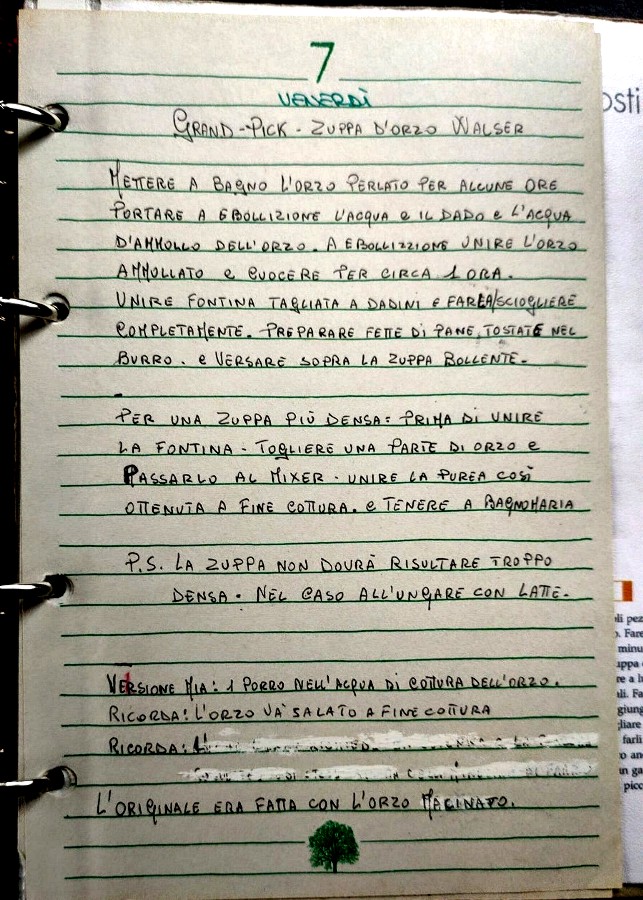 7
VENERDÌ
GRAND-PICK - ZUPPA D'ORZO WALSER
METTERE A BAGNO L'ORZO PERLATO PER ALCUNE ORE
PORTARE A EBOLLIZIONE L'ACQUA e IL DADO e L'ACQUA
D'AMMOLLO DELL'ORZO. A EBOLLIZZIONE UNIRE L'ORZO
AMMOLLATO e CUOCERE PER CIRCA 1 ORA.
UNIRE FONTINA TAGLIATA A DADINI e FARLA/SCIOGLIERE
COMPLETAMENTE. PREPARARE FETTE DI PANE, TOSTATE NEL
BURRO. e VERSARE SOPRA LA ZUPPA BOLLENTE.
PER UNA ZUPPA PIÙ DENSA: PRIMA DI UNIRE
LA FONTINA - TOGLIERE UNA PARTE DI ORZO e
PASSARLO AL MIXER - UNIRE LA PUREA COSÌ
OTTENUTA A FINE COTTURA. e TENERE A BAGNOMARIA
P.S. LA ZUPPA NON DOVRÀ RISULTARE TROPPO
DENSA. NEL CASO ALL'UNGARE CON LATTE.
VERSIONE MIA: 1 PORRO NELL'ACQUA DI COTTURA DELL'ORZO.
RICORDA: L'ORZO VA' SALATO A FINE COTTURA
RICORDA:
L'ORIGINALE ERA FATTA CON L'ORZO MACINATO.
osti